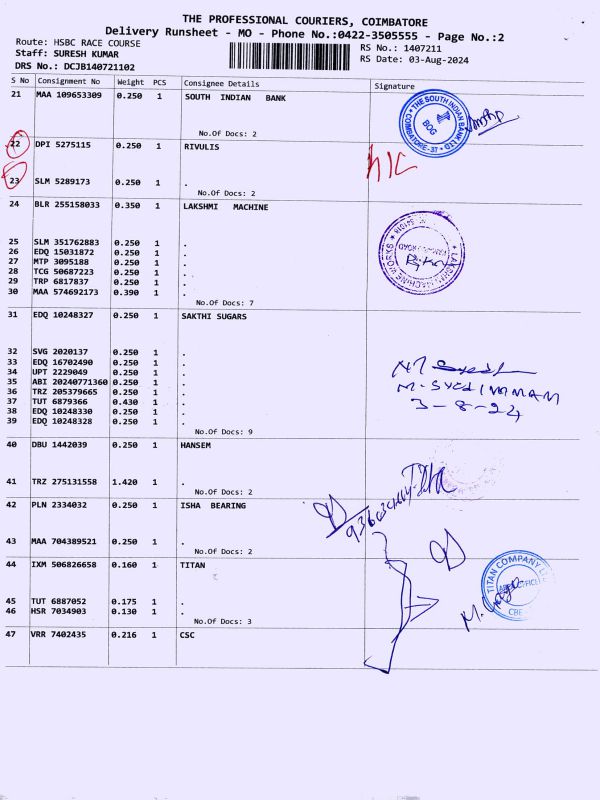 THE PROFESSIONAL COURIERS, COIMBATORE
Delivery Runsheet - MO - Phone No.:0422-3505555 - Page No.:2
Route: HSBC RACE COURSE
RS No.: 1407211
Staff: SURESH KUMAR
RS Date: 03-Aug-2024
DRS No.: DCJB140721102
S No Consignment No Weight PCS Consignee Details Signature
21 MAA 109653309 0.250 1 SOUTH INDIAN BANK
THE SOUTH INDIAN BANK LTD
BOG
COIMBATORE-37
No.Of Docs: 2
22 DPI 5275115 0.250 1 RIVULIS
23 SLM 5289173 0.250 1 .
No.Of Docs: 2
24 BLR 255158033 0.350 1 LAKSHMI MACHINE
LAKSHMI MACHINE WORKS
25 SLM 351762883 0.250 1 .
26 EDQ 15031872 0.250 1 .
27 MTP 3095188 0.250 1 .
28 TCG 50687223 0.250 1 .
29 TRP 6817837 0.250 1 .
30 MAA 574692173 0.390 1 .
No.Of Docs: 7
31 EDQ 10248327 0.250 1 SAKTHI SUGARS
32 SVG 2020137 0.250 1 .
33 EDQ 16702490 0.250 1 .
34 UPT 2229049 0.250 1 .
35 ABI 20240771360 0.250 1 .
36 TRZ 205379665 0.250 1 .
37 TUT 6879366 0.430 1 .
38 EDQ 10248330 0.250 1 .
39 EDQ 10248328 0.250 1 .
M. SYED IMMAM
3-8-24
No.Of Docs: 9
40 DBU 1442039 0.250 1 HANSEM
41 TRZ 275131558 1.420 1 .
No.Of Docs: 2
42 PLN 2334032 0.250 1 ISHA BEARING
43 MAA 704389521 0.250 1 .
No.Of Docs: 2
44 IXM 506826658 0.160 1 TITAN
TITAN COMPANY LTD
CBE
45 TUT 6887052 0.175 1 .
46 HSR 7034903 0.130 1 .
No.Of Docs: 3
47 VRR 7402435 0.216 1 CSC